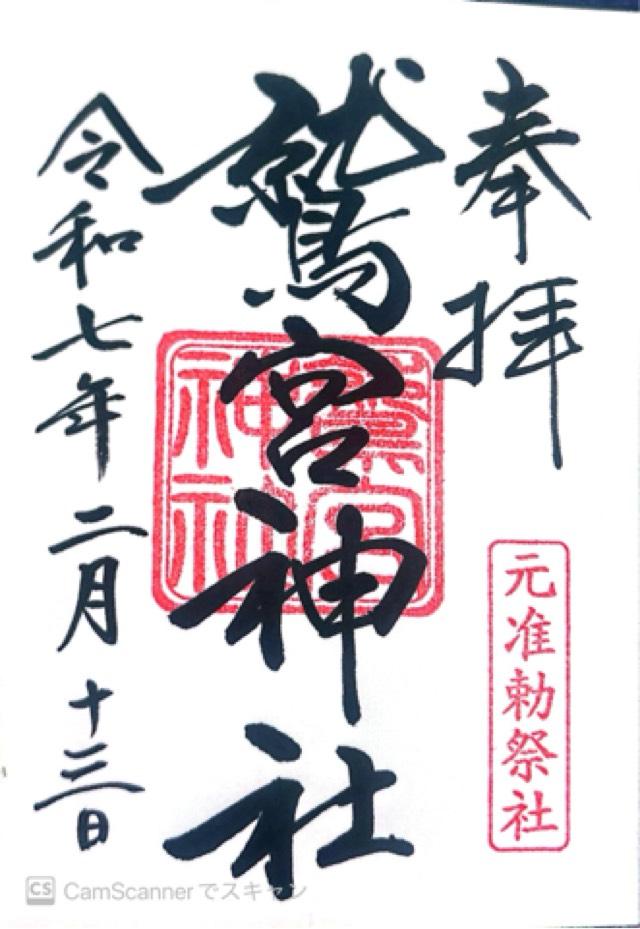 奉拝
元准勅祭社
鷲宮神社
鷲宮
神社
令和七年二月十三日
CS CamScannerでスキャン